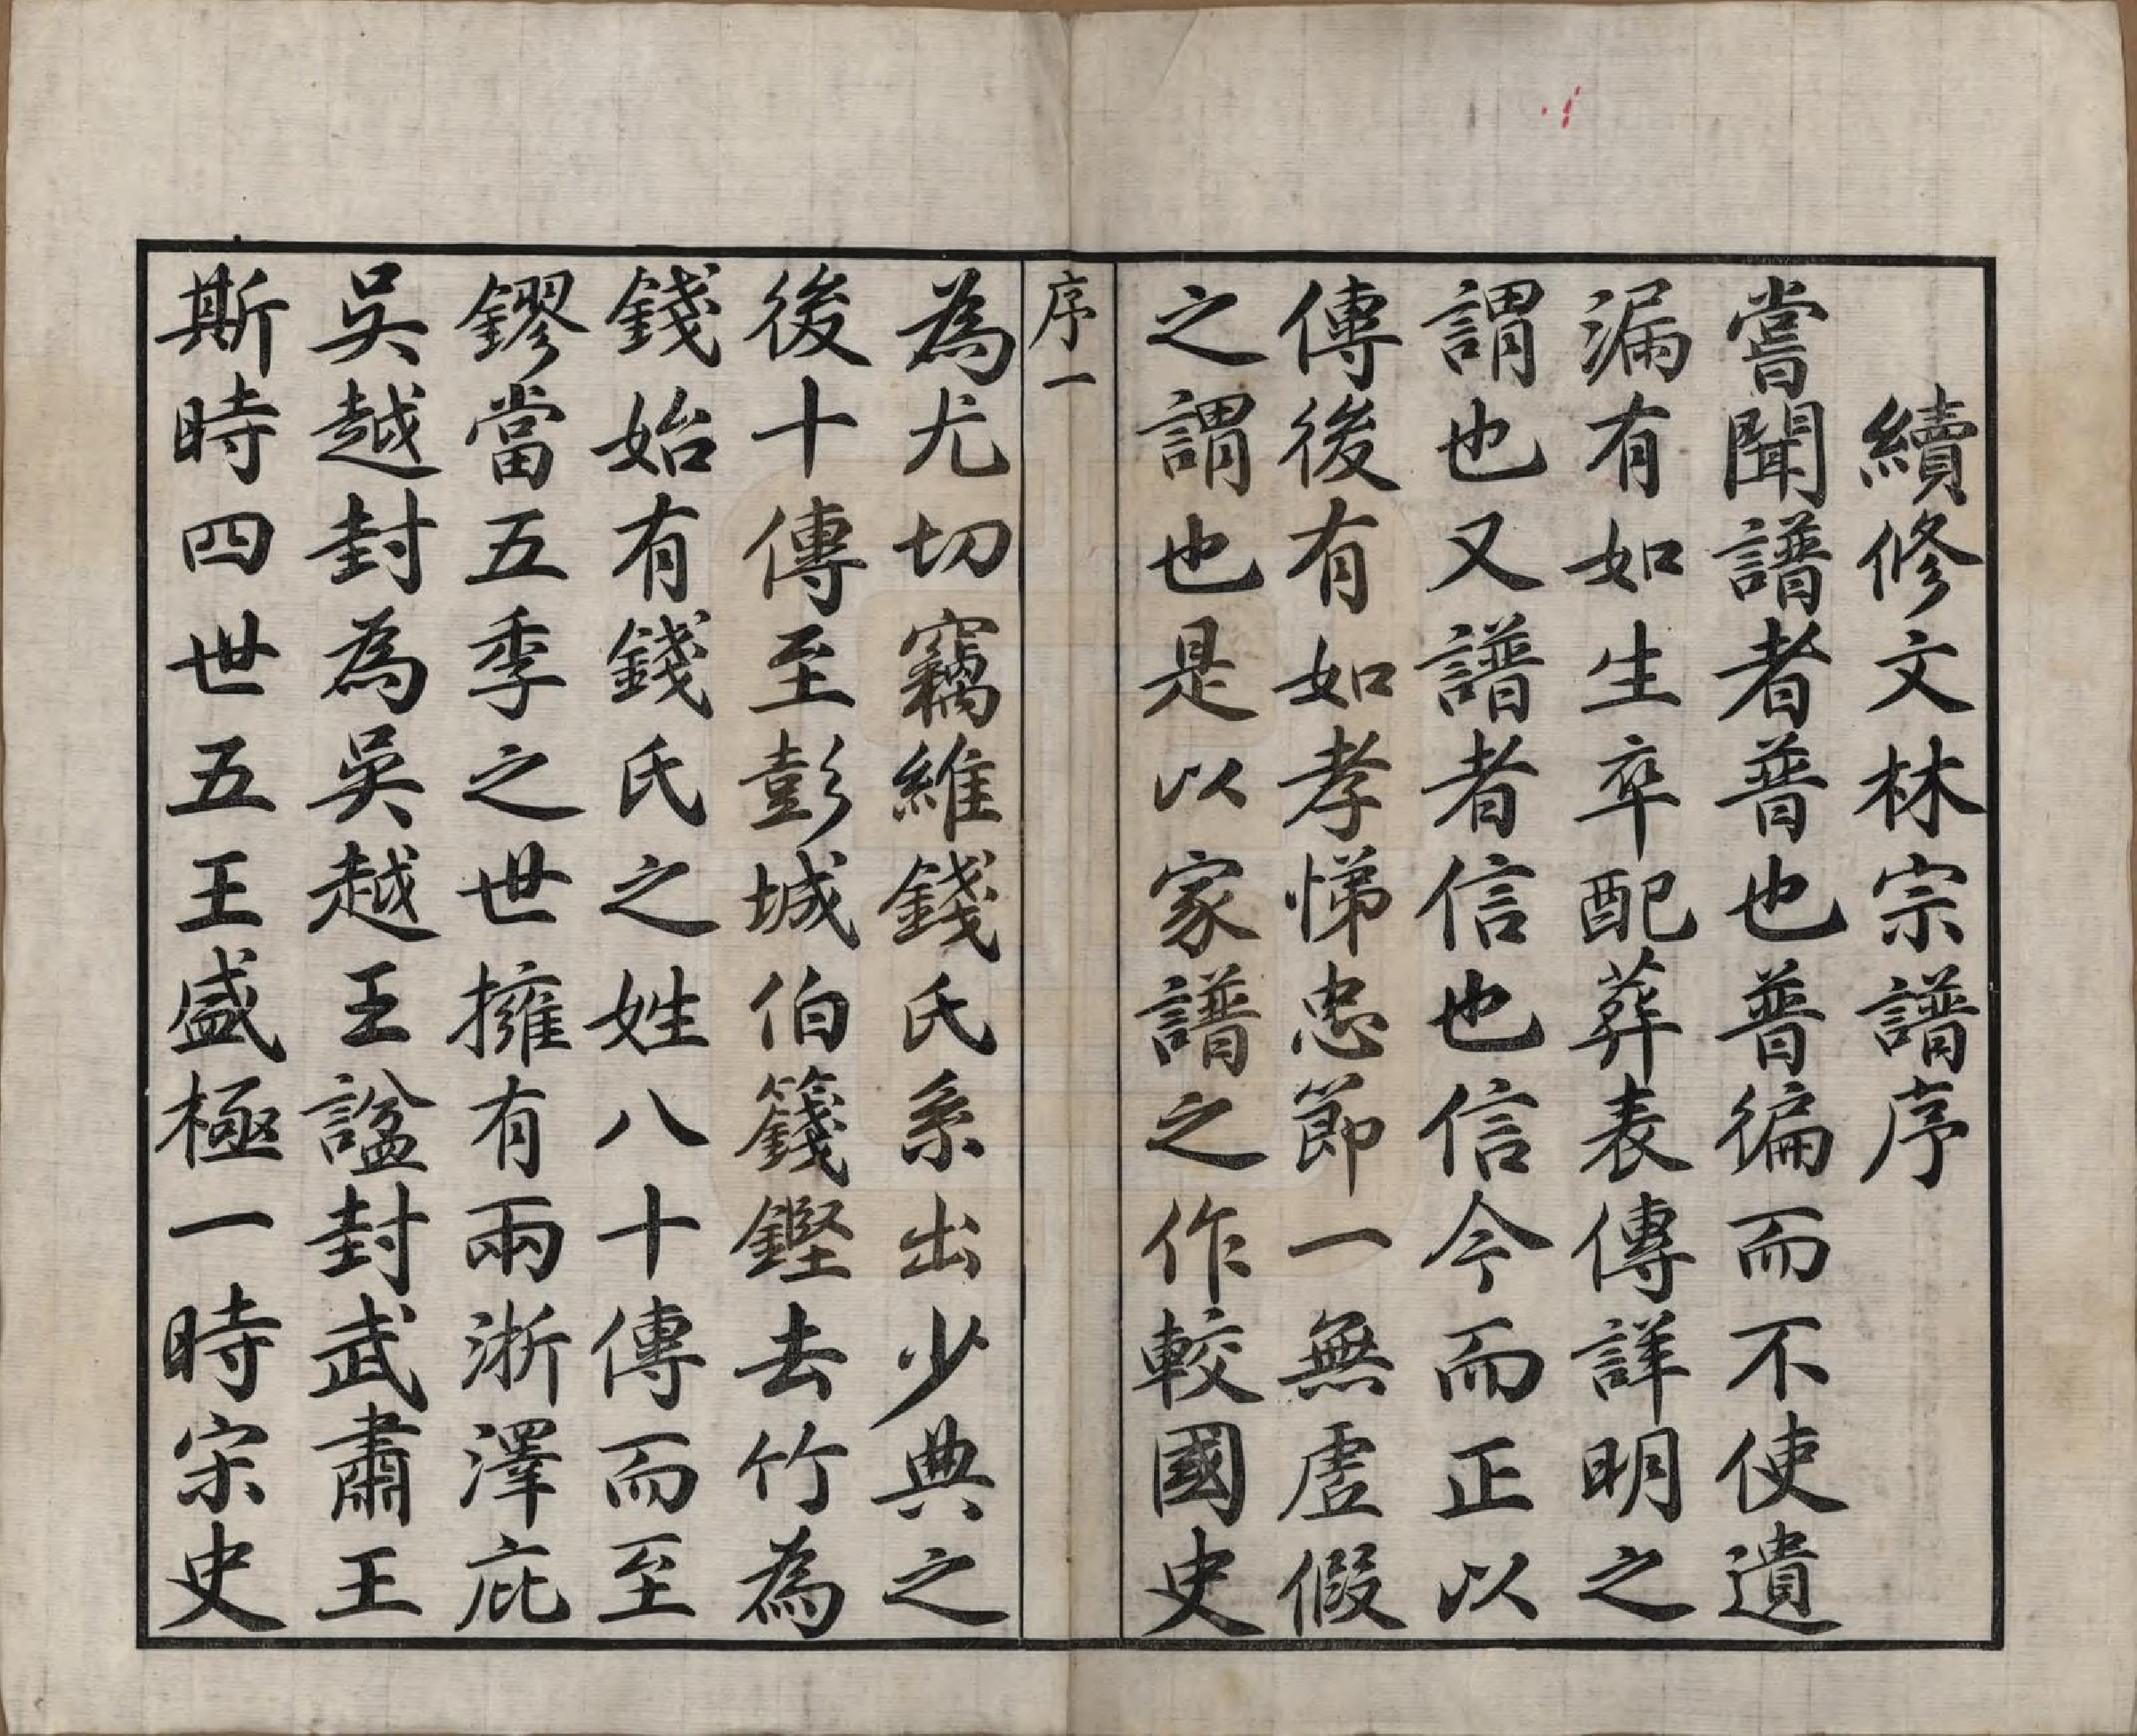 續修文林宗譜序
嘗聞譜者普也普徧而不使遺
漏有如生卒配葬表傳詳明之
謂也又譜者信也信今而正以
傳後有如孝悌忠節一無虛假
之謂也是以家譜之作較國史
序一
為尤切竊維錢氏系出少典之
後十傳至彭城伯籛鏗去竹為
錢始有錢氏之姓八十傳而至
鏐當五季之世擁有兩浙澤庇
吳越封為吳越王諡封武肅王
斯時四世五王盛極一時宋史